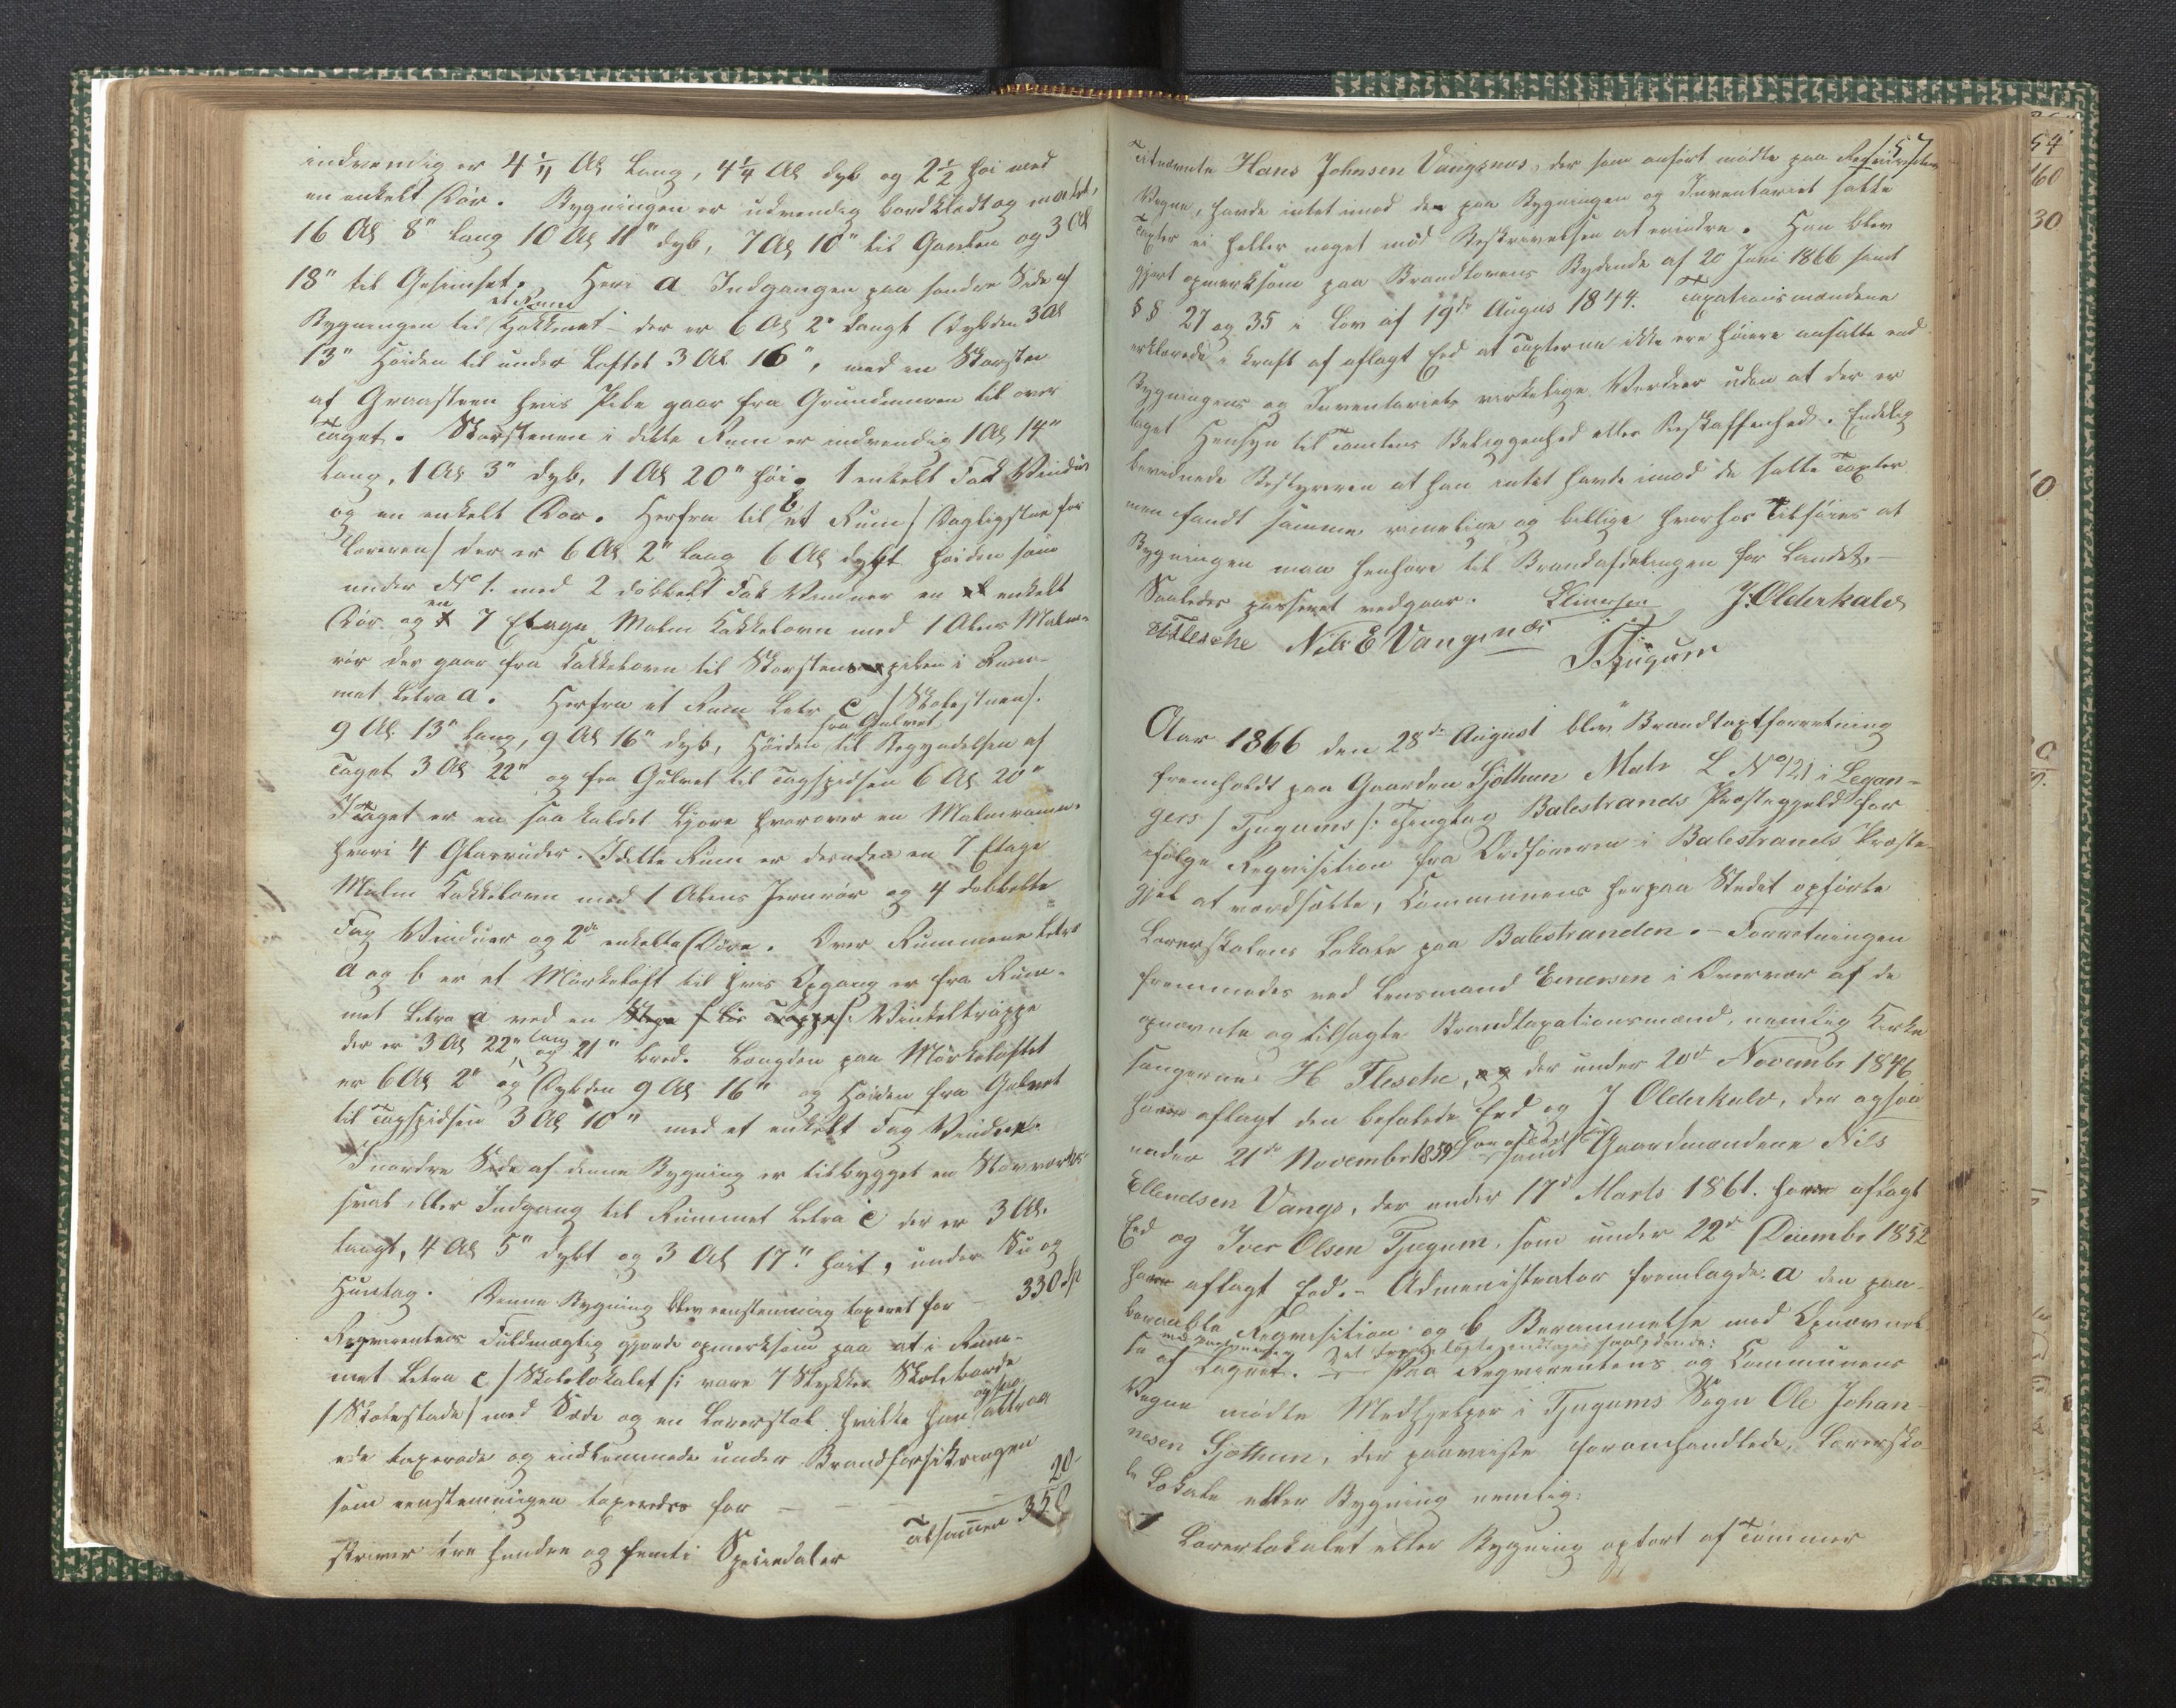 indvendig er 4 1/4 Al lang, 4 1/4 Al dyb og 2 1/2 høi med
en enkelt Dør. Bygningen er udvendig bordklædt og malet,
16 Al 8" lang 10 Al 11" dyb, 7 Al 10" til Garden og 3 Al
18" til Gesimset. Heri a Indgangen paa søndre Side af
Bygningen til et Rum Kjøkkenet - der er 6 Al 2" langt Dybden 3 Al
13" Høiden til under Loftet 3 Al 16", med en Skorsten
af Graasteen hvis Pibe gaar fra Grundmuren til over
Taget. Skorstenen i dette Rum er indvendig 1 Al 14"
lang, 1 Al 3" dyb, 1 Al 20" høi. 1 enkelt Fak Vindue
og en enkelt Dør. Herfra til b et Rum / Dagligstue for
Læreren / der er 6 Al 2" lang 6 Al dybt Høiden som
under No 1. med 2 dobbelt Fak Vinduer en enkelt
Dør og en 7 Etages Malm Kakkelovn med 1 Alens Malm-
rør der gaar fra Kakkelovn til Skorstenspiben i Rum-
met Letra a. Herfra et Rum Letr c / Skolestuen /.
9 Al 13" lang, 9 Al 16" dyb, Høiden fra Gulvet til Begyndelsen af
Taget 3 Al 22" og fra Gulvet til Tagspidsen 6 Al 20"
I Taget er en saa kaldet Ljore hvorover en Malmramme
hvori 4 Glasruder. I dette Rum er desuden en 7 Etage
Malm Kakkelovn med 1 Alens Jernrør og 4 dobbelte
Fag Vinduer og 2de enkelte Døre. Over Rummene Letra
a og b er et Mørkeloft til hvis Opgang er fra Rum-
met Letra a ved en Vinkeltrappe
der er 3 Al 22" lang og 21" bred. Længden paa Mørkeloftet
er 6 Al 2" og Dybden 9 Al 16" og Høiden fra Gulvet
til Tagspidsen 3 Al 10" med et enkelt Fag Vindue.
I nordre Side af denne Bygning er tilbygget en Stavværks
sval eller Indgang til Rummet Letra c der er 3 Al.
langt, 4 Al 5" dybt og 3 Al 17" høit, under Su og
Huntag. Denne Bygning blev eenstemmig taxeret for - 330 Sp
Reqvirentens Fuldmægtig gjorde opmerksom paa at i Rum-
met Letra c / Skolelokalet /: vare 7 Stykker Skoleborde
/ Skolestade / med Sæde og en Lærerstol hvilke han ogsaa
ede taxerede og indlemmede under Brandforsikringen
som eenstemmigen taxeredes for - - - 20
Tilsammen 350
skriver tre hundre og femti Speciedaler
157
Titnævnte Hans Johnsen Vangsnæs, der som anført mødte paa Reqvirentens
Vegne, havde intet imod den paa Bygningen og Inventariet satte
Taxter ei heller noget mod Beskrivelsen at erindre. Han blev
gjort opmerksom paa Brandlovens Bydende af 20 Juni 1866 samt
§§ 27 og 35 i Lov af 19de Augus 1844. Taxationsmændene
erklærede i Kraft af aflagt Eed at Taxterne ikke ere høiere ansatte end
Bygningens og Inventariets virkelige Værdier uden at der er
taget Hensyn til Tomtens Beliggenhed eller Beskaffenhed. Endelig
bevidnede Bestyreren at han intet havde imod de satte Taxter
men fandt samme rimelige og billige hvorhos Tilføies at
Bygningen maa henhøre til Brandafdelingen for Landet. -
Saaledes passeret vedgaar. Einersen J. Olderkald
H Flesche Nils E Vangsnæs
I Tjugum
Aar 1866 den 28de August blev Brandtaxtforretning
fremholdt paa Gaarden Sjøthun Matr L No 121 i Legan-
gers / Tjugums /: Thinglag Balestrands Præstegjeld for
ifølge Reqvisition fra Ordføreren i Balestrands Præste
gjel at værdsætte, Kommunens herpaa Stedet opførte
Lærerskolens Lokale paa Balestranden. - Forretningen
fremmedes ved Lensmand Einersen i Overvær af de
opnævnte og tilsagte Brandtaxationsmænd, nemlig Kirke
sangerne H Flesche, der under 20de Novembr 1846
have aflagt den befalede Eed og J Olderkald, der ogsaa
under 21de Novembr 1859 har aflagt Eed samt Gaardmændene Nils
Ellendsen Vangs, der under 17de Marts 1861. have aflagt
Eed og Iver Olsen Tjugum, som under 22de Decembr 1852
have aflagt Eed. - Administrator fremlagde: a den paa-
beraabte Reqvisition og b Berammelse med Opnævnel
se af Lagret. Paa Reqvirentens og Communens
Vegne mødte Medhjelper i Tjugums Sogn Ole Johan-
nesen Sjøthun, der paaviiste foromhandlede Lærersko
le Lokale eller Bygning nemlig:
1 Lærerlokalet eller Bygning opført af Tømmer
54
160
30